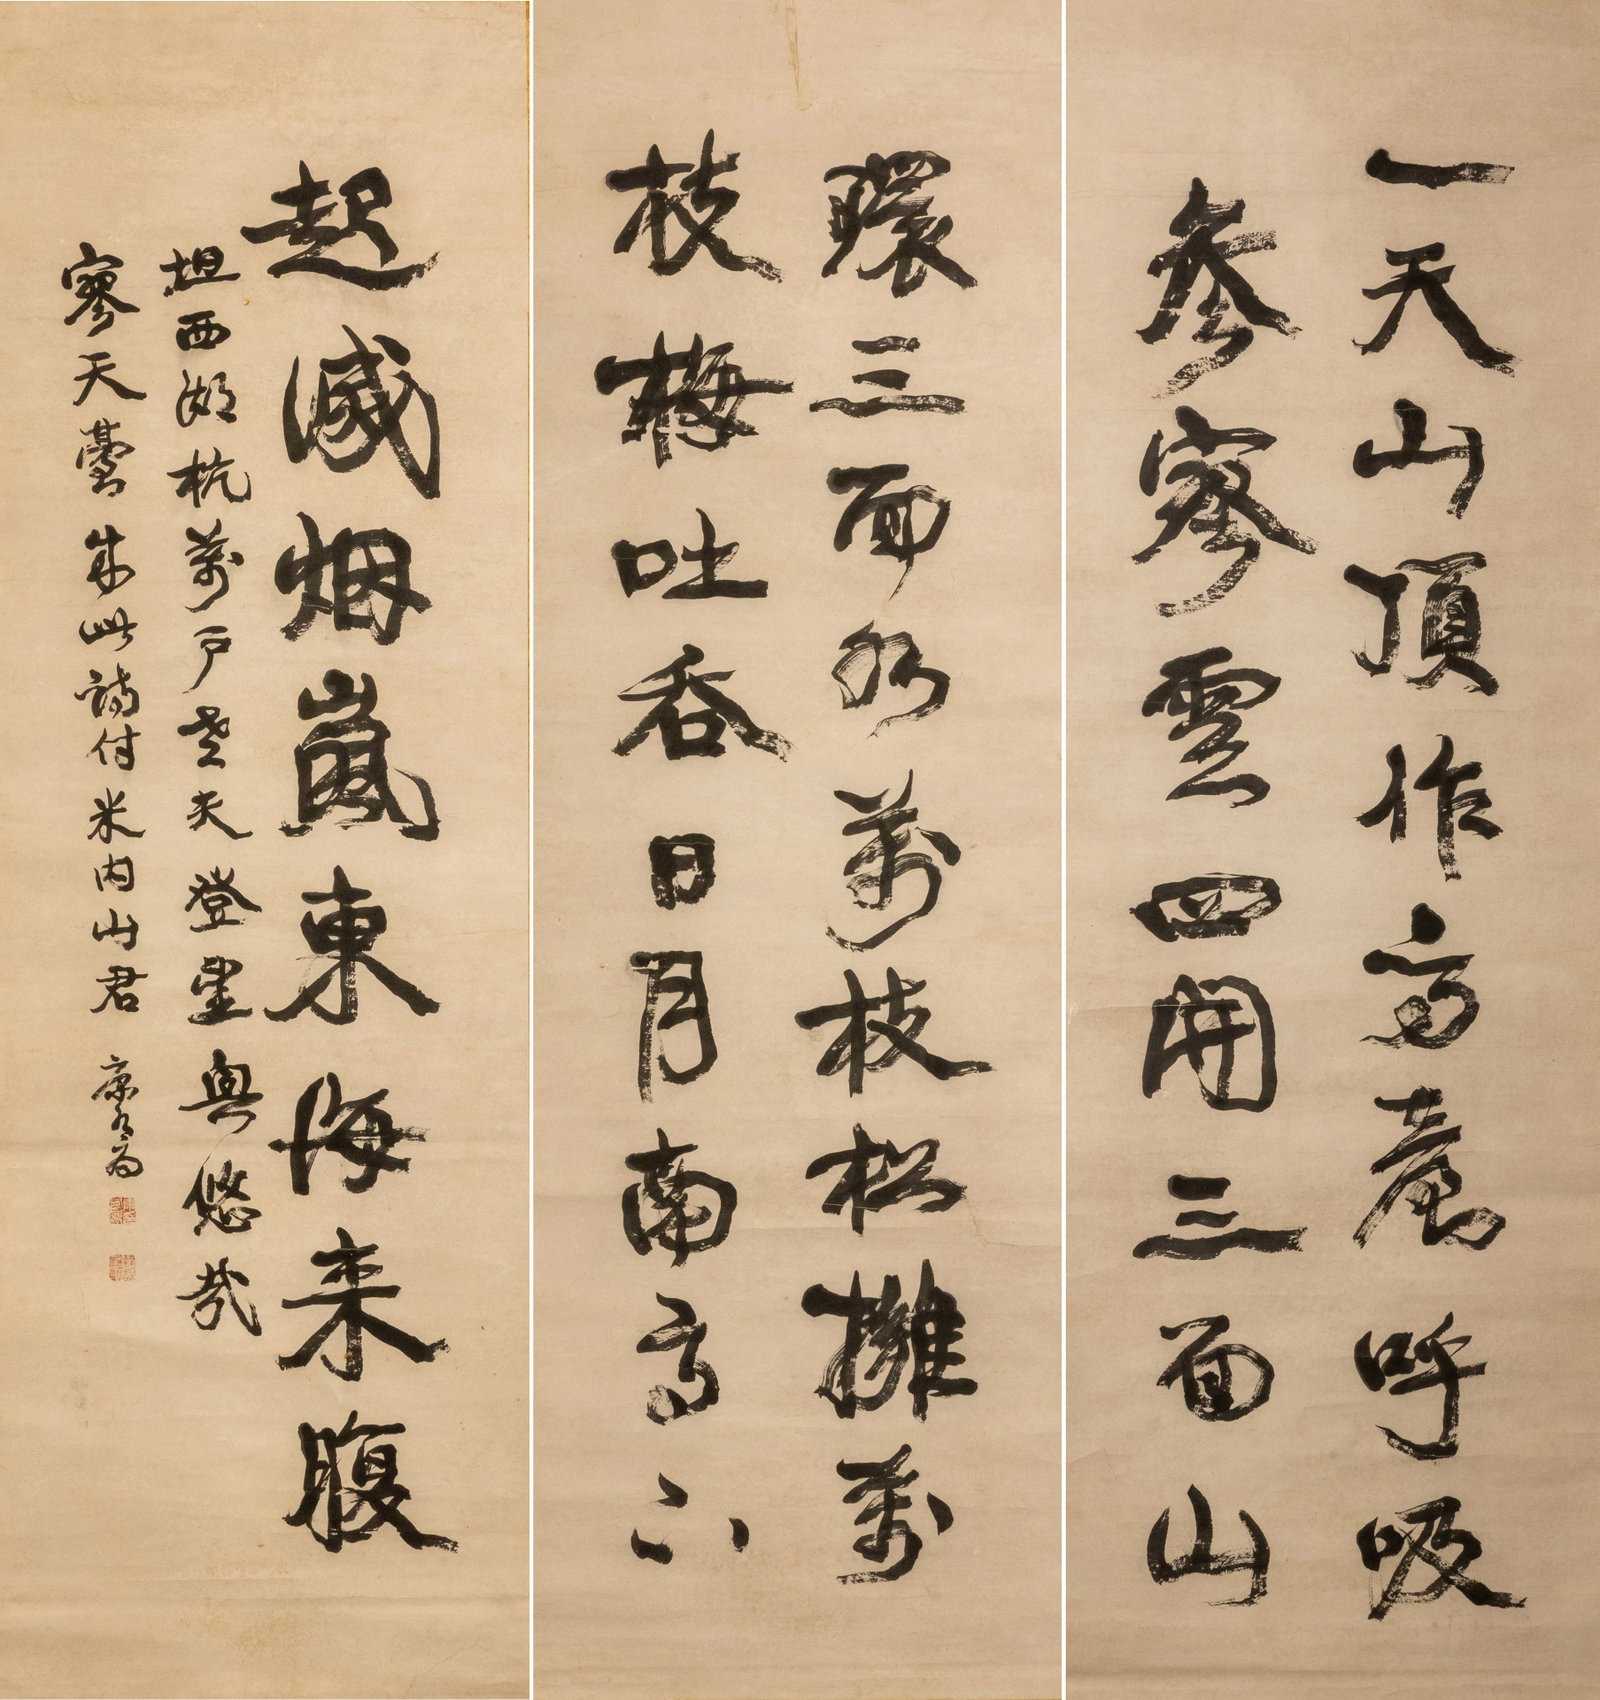 一天山頂作高臺呼吸
參寥雲四開三面山
環三面水萬枝松擁萬
枝梅吐吞日月南高下
起滅烟嵐東海来腹
坦西湖杭萬戶老夫登望輿悠哉
寥天臺成此詩付米内山君
康有為